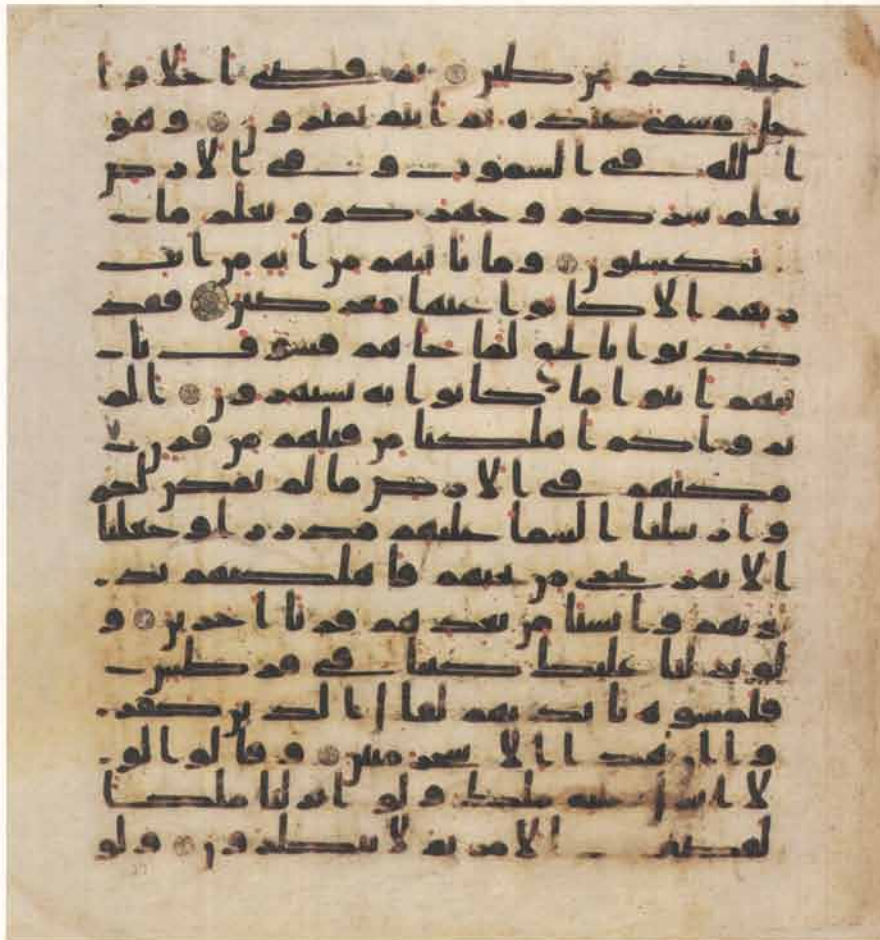 خلقكم من طين ثم قضى اجلا وا
جل مسمى عنده ثم انتم تمترون وهو
الله في السموت وفي الارض
يعلم سركم وجهركم ويعلم ما
تكسبون وما تاتيهم من اية من ايت
ربهم الا كانوا عنها معرضين فقد
كذبوا بالحق لما جاهم فسوف يا
تيهم انبوا ما كانوا به يستهزون الم
يروا كم اهلكنا من قبلهم من قرن
مكنهم في الارض ما لم نمكن لكم
وارسلنا السما عليهم مدرارا وجعلنا
الانهر تجري من تحتهم فاهلكنهم بذ
نوبهم وانشانا من بعدهم قرنا اخرين و
لو نزلنا عليك كتبا في قرطس
فلمسوه بايديهم لقال الذين كفر
وا ان هذا الا سحر مبين وقالوا لو
لا انزل عليه ملك ولو انزلنا ملكا
لقضي الامر ثم لا ينظرون ولو